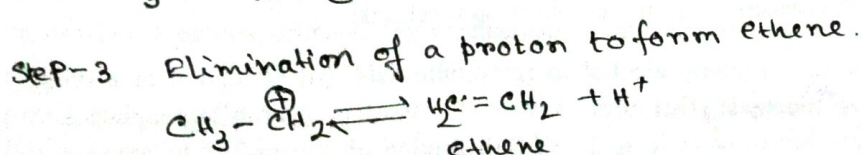 Step-3 Elimination of a proton to form ethene.
CH₃ - C⊕H₂ ⇌ H₂C = CH₂ + H⁺
ethene